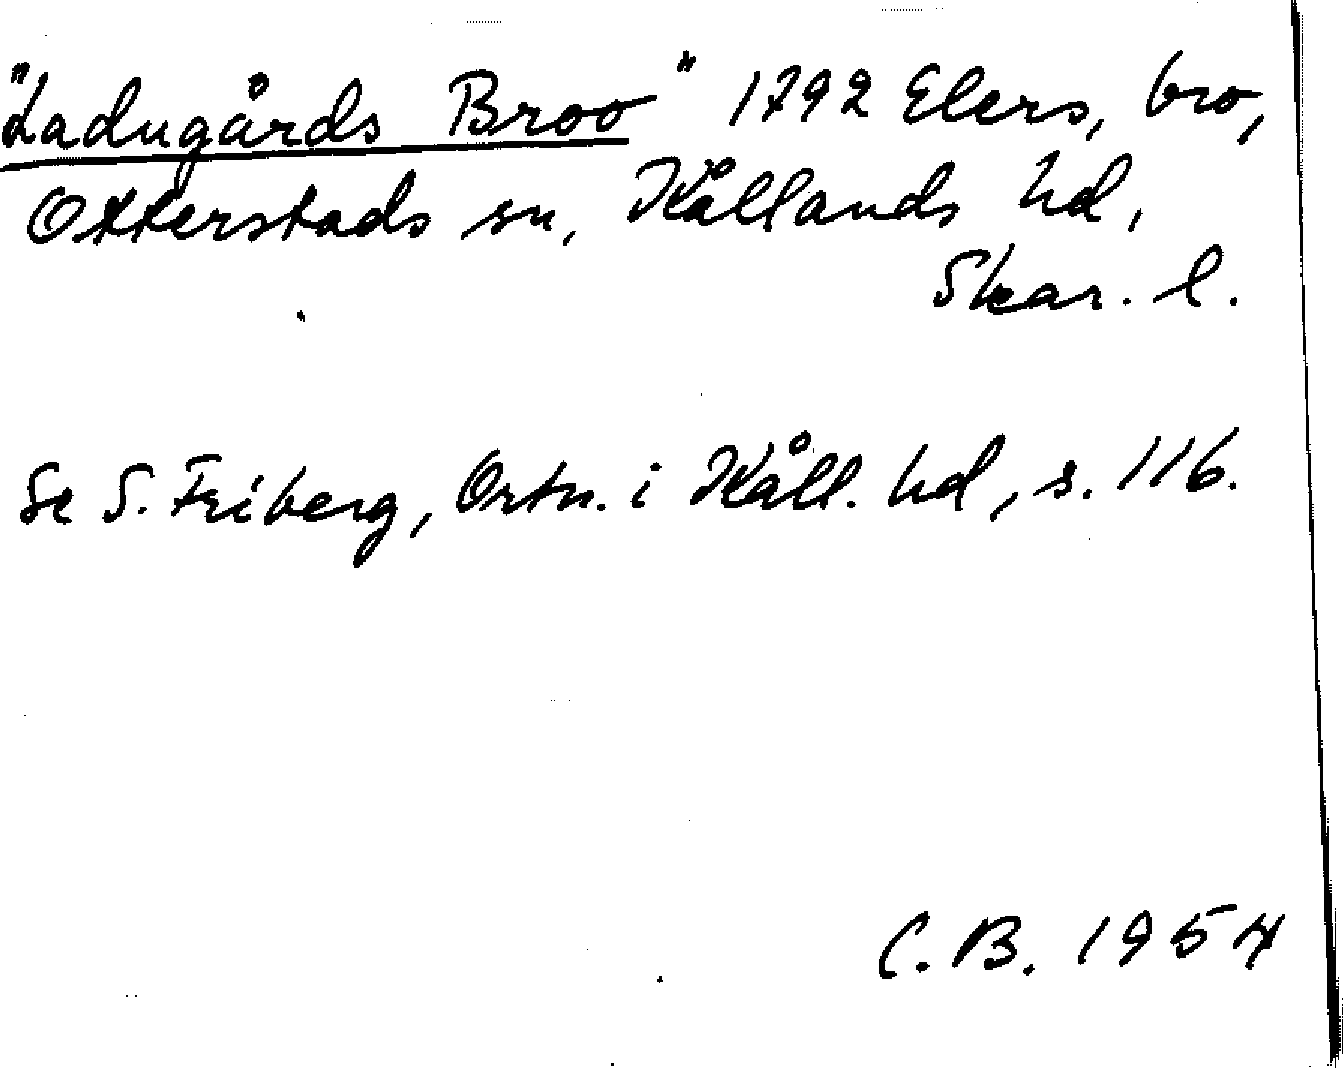 "Ladugårds Broo" 1792 Elers, bro,
Otterstads sn, Kållands hd,
Skar. l.
Se S. Friberg, Ortn. i Kåll. hd, s. 116.
C.B. 1954